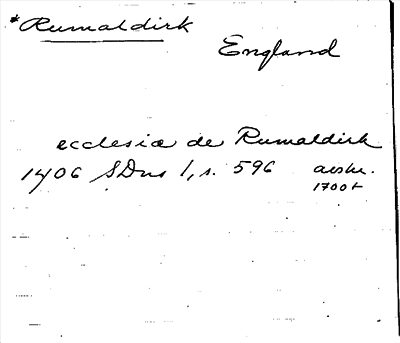 *Rumaldirk
England
ecclesia de Rumaldirk
1406 SDns 1, s. 596 avskr.
1700t